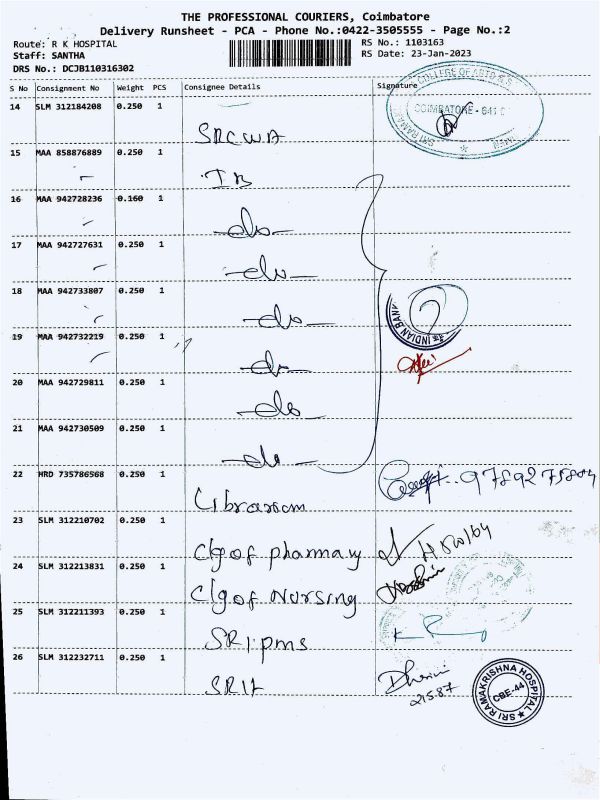 THE PROFESSIONAL COURIERS, Coimbatore
Delivery Runsheet - PCA - Phone No.:0422-3505555 - Page No.:2
Route: R K HOSPITAL
RS No.: 1103163
Staff: SANTHA
RS Date: 23-Jan-2023
DRS No.: DCJB110316302
S No Consignment No Weight PCS Consignee Details Signature
14 SLM 312184208 0.250 1
COLLEGE OF ARTS
COIMBATORE - 641 0
SRI RAMA
SRCWA
15 MAA 858876889 0.250 1
IB
16 MAA 942728236 0.160 1
-do-
17 MAA 942727631 0.250 1
-do-
18 MAA 942733807 0.250 1
-do-
INDIAN BANK
19 MAA 942732219 0.250 1
-do-
20 MAA 942729811 0.250 1
-do-
21 MAA 942730509 0.250 1
-do-
22 HRD 735786568 0.250 1
Librarian
23 SLM 312210702 0.250 1
Clg of pharmacy
24 SLM 312213831 0.250 1
Clg of Nursing
25 SLM 312211393 0.250 1
SRIpms
26 SLM 312232711 0.250 1
SRIT
21587
SRI RAMAKRISHNA HOSPITAL
CBE-44